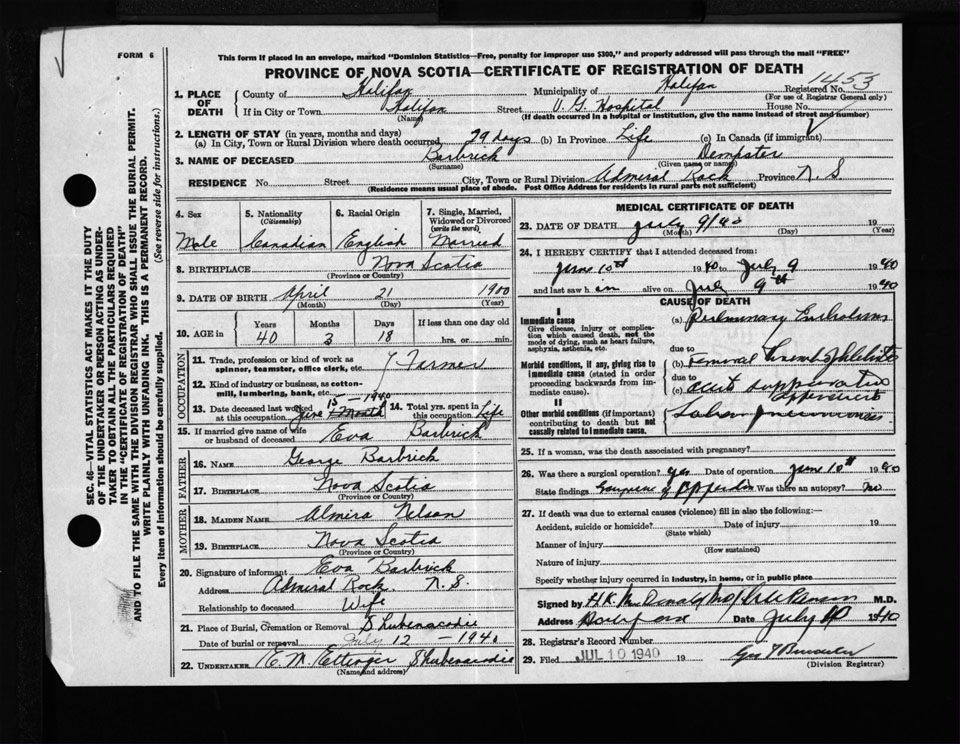 FORM 6
This form if placed in an envelope, marked "Dominion Statistics—Free, penalty for improper use $300," and properly addressed will pass through the mail "FREE"
PROVINCE OF NOVA SCOTIA—CERTIFICATE OF REGISTRATION OF DEATH
1453
1. PLACE OF DEATH
County of Halifax Municipality of Halifax Registered No.
(For use of Registrar General only)
If in City or Town Halifax Street V. G. Hospital House No.
(Name) (If death occurred in a hospital or institution, give the name instead of street and number)
2. LENGTH OF STAY (in years, months and days)
(a) In City, Town or Rural Division where death occurred 29 days (b) In Province Life (c) In Canada (if immigrant)
3. NAME OF DECEASED Barbrick Dempster
(Surname) (Given name or names)
RESIDENCE No. Street City, Town or Rural Division Admiral Rock Province N. S.
(Residence means usual place of abode. Post Office Address for residents in rural parts not sufficient)
4. Sex Male
5. Nationality (Citizenship) Canadian
6. Racial Origin English
7. Single, Married, Widowed or Divorced (write the word) Married
8. BIRTHPLACE Nova Scotia
(Province or Country)
9. DATE OF BIRTH April 21 1900
(Month) (Day) (Year)
10. AGE in Years Months Days If less than one day old
40 3 18 hrs. or min.
OCCUPATION
11. Trade, profession or kind of work as spinner, teamster, office clerk, etc. Farmer
12. Kind of industry or business, as cotton-mill, lumbering, bank, etc.
13. Date deceased last worked at this occupation June 15 - 1940 1 Month
14. Total yrs. spent in this occupation Life
15. If married give name of wife or husband of deceased Eva Barbrick
FATHER
16. NAME George Barbrick
17. BIRTHPLACE Nova Scotia
(Province or Country)
MOTHER
18. MAIDEN NAME Almira Nelson
19. BIRTHPLACE Nova Scotia
(Province or Country)
20. Signature of informant Eva Barbrick
Address Admiral Rock, N. S.
Relationship to deceased Wife
21. Place of Burial, Cremation or Removal Shubenacadie
Date of burial or removal July 12 - 1940
22. UNDERTAKER E. M. Ettinger Shubenacadie
(Name and address)
MEDICAL CERTIFICATE OF DEATH
23. DATE OF DEATH July 9/40 19
(Month) (Day) (Year)
24. I HEREBY CERTIFY that I attended deceased from:
June 10th 1940 to July 9 1940
and last saw him alive on July 9th 1940
CAUSE OF DEATH
I
Immediate cause
Give disease, injury or complication which caused death, not the mode of dying, such as heart failure, asphyxia, asthenia, etc.
(a) Pulmonary Embolism
due to
Morbid conditions, if any, giving rise to immediate cause (stated in order proceeding backwards from immediate cause).
(b) Femoral Thrombophlebitis
due to
(c) Acute suppurative appendicitis
II
Other morbid conditions (if important) contributing to death but not causally related to immediate cause.
Lobar pneumonia
25. If a woman, was the death associated with pregnancy?
26. Was there a surgical operation? yes Date of operation June 10th 1940
State findings Gangrene of Appendix Was there an autopsy? no
27. If death was due to external causes (violence) fill in also the following:—
Accident, suicide or homicide? Date of injury 19
(State which)
Manner of injury
(How sustained)
Nature of injury
Specify whether injury occurred in industry, in home, or in public place
Signed by H. K. McDonald M.D.
Address Date July 10 1940
28. Registrar's Record Number
29. Filed JUL 10 1940 19
(Division Registrar)
SEC. 46—VITAL STATISTICS ACT MAKES IT THE DUTY
OF THE UNDERTAKER OR PERSON ACTING AS UNDER-
TAKER TO OBTAIN ALL THE PARTICULARS REQUIRED
IN THE "CERTIFICATE OF REGISTRATION OF DEATH"
AND TO FILE THE SAME WITH THE DIVISION REGISTRAR WHO SHALL ISSUE THE BURIAL PERMIT.
WRITE PLAINLY WITH UNFADING INK. THIS IS A PERMANENT RECORD.
Every item of information should be carefully supplied. (See reverse side for instructions.)